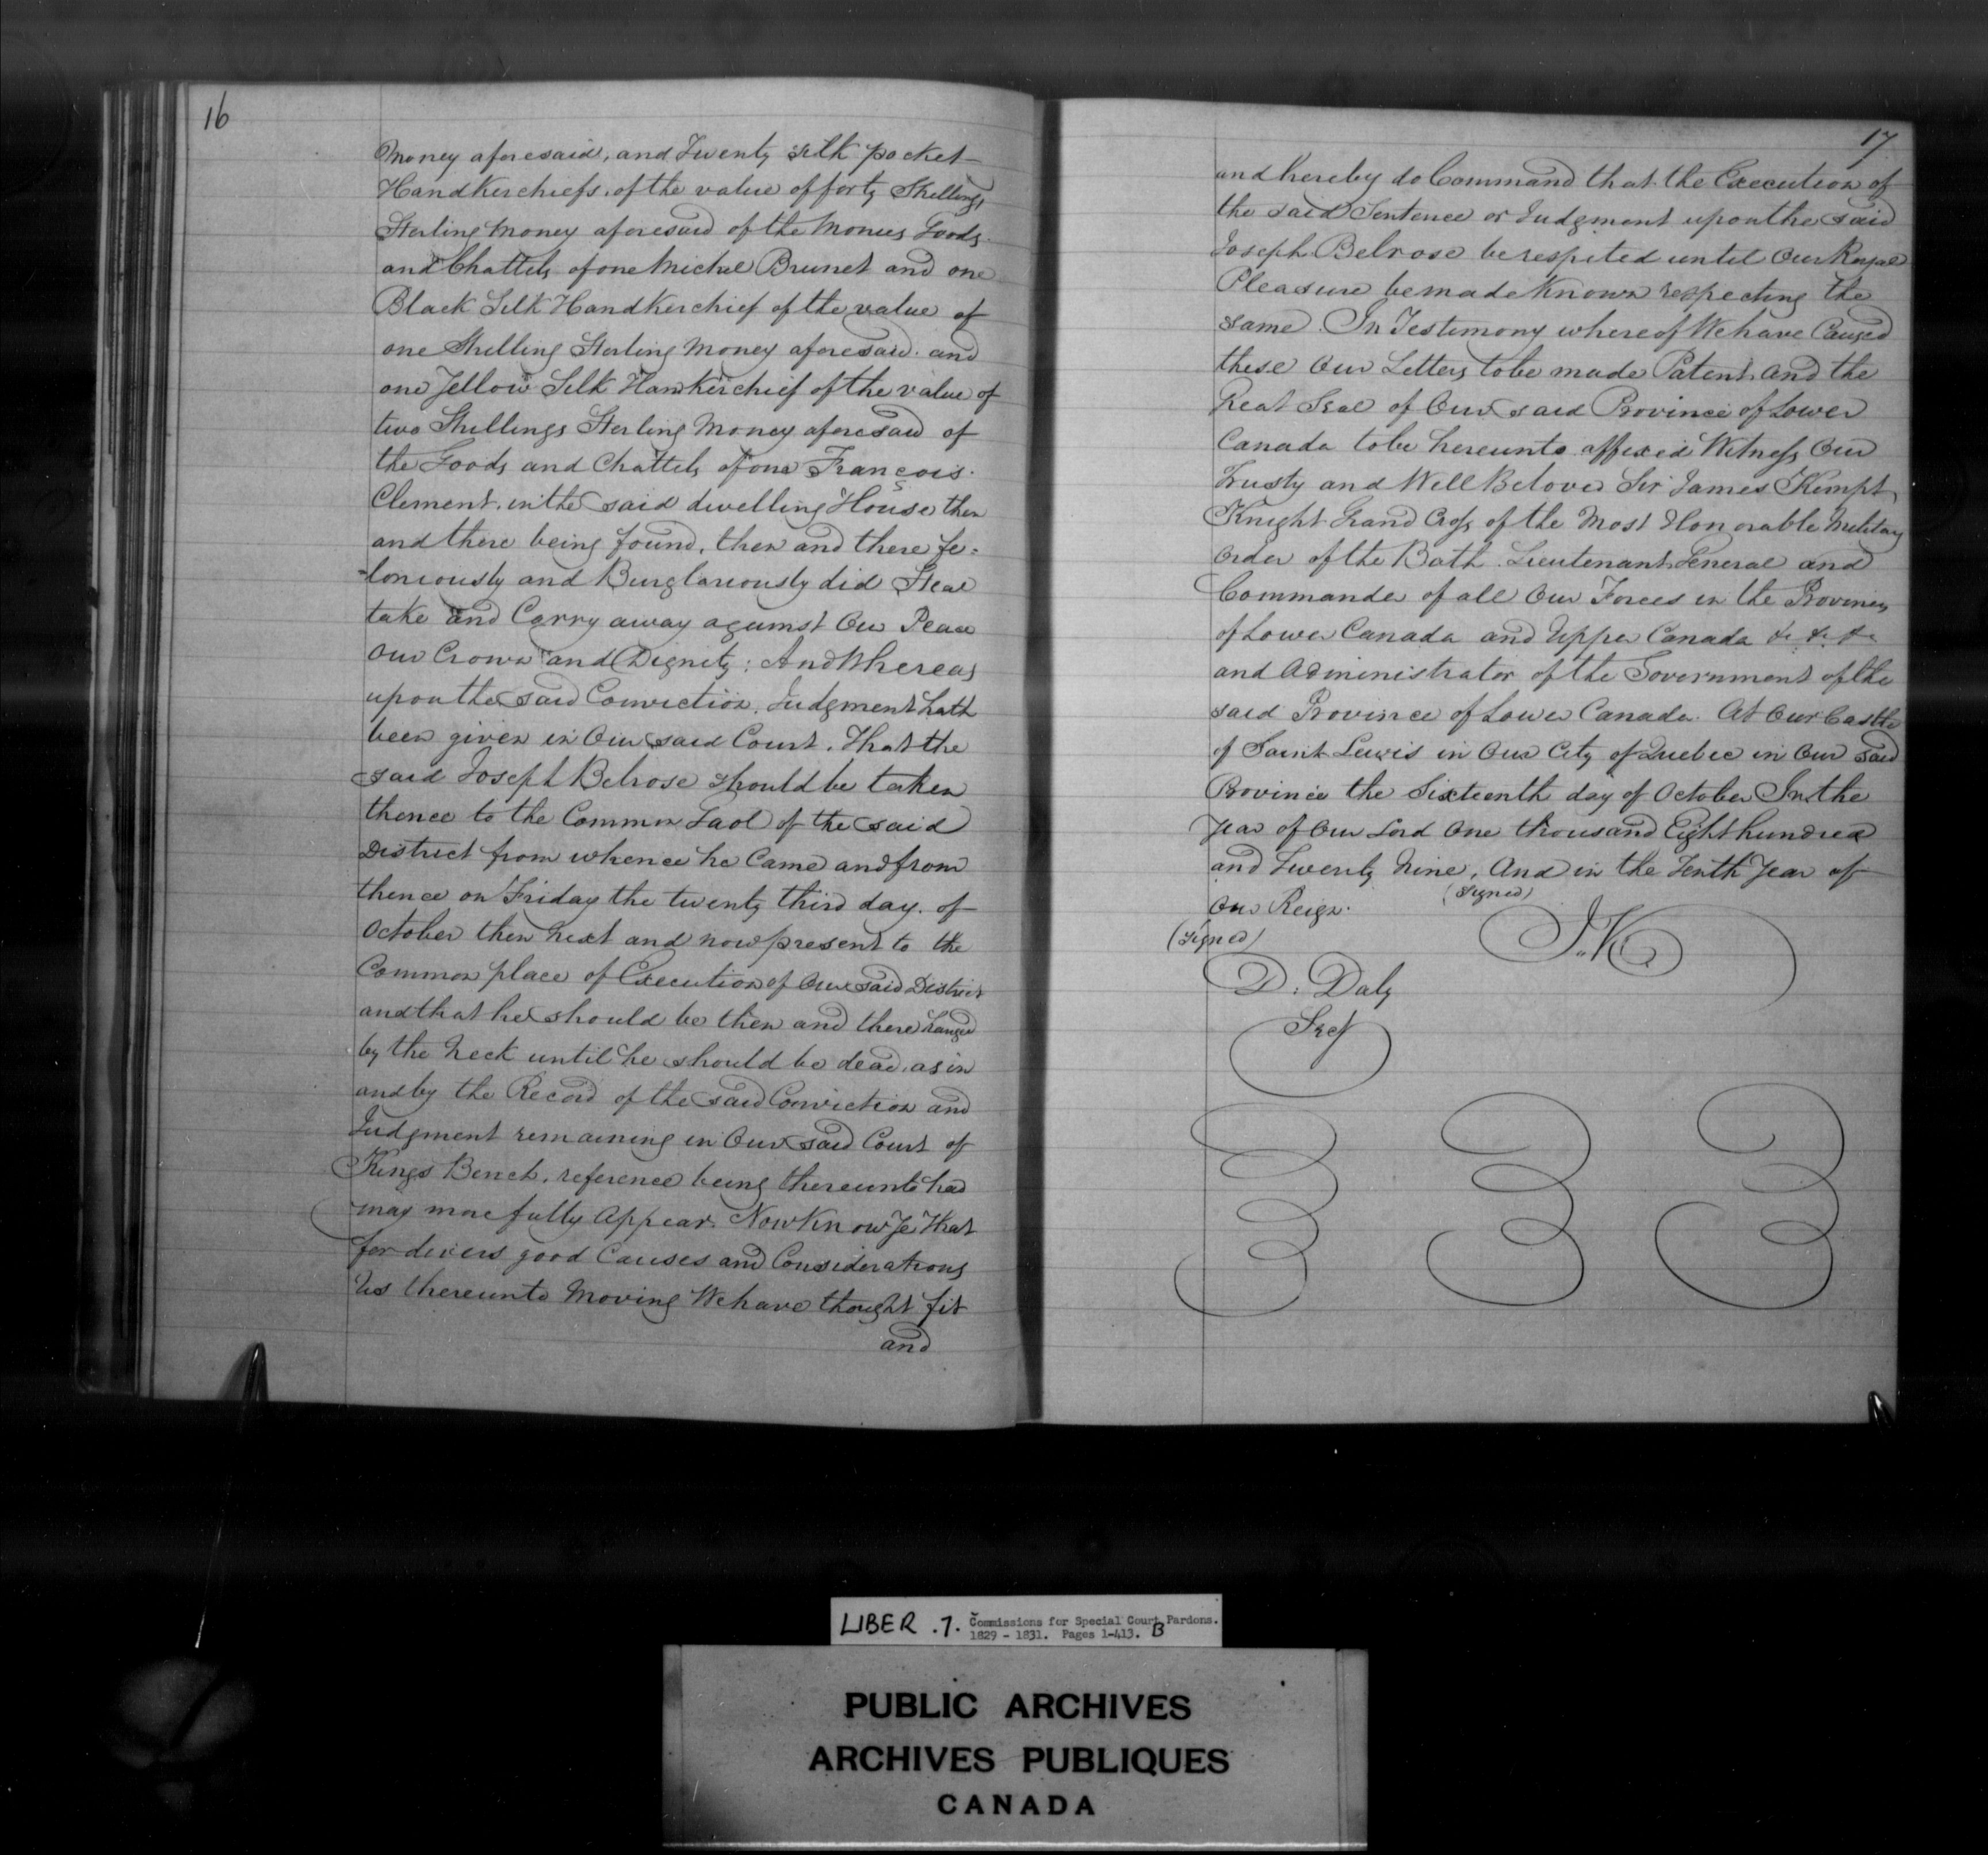 16
Money aforesaid, and Twenty silk pocket
Handkerchiefs of the value of forty Shillings
Sterling Money aforesaid of the Monies Goods
and Chattels of one Michel Brunet and one
Black Silk Handkerchief of the value of
one Shilling Sterling Money aforesaid. and
one Yellow Silk Hankerchief of the value of
two Shillings Sterling Money aforesaid of
the Goods and Chattels of one François
Clement, in the said dwelling House then
and there being found, then and there fe-
-loniously and Burglariously did Steal
take and Carry away against Our Peace
Our Crown and Dignity: And Whereas
upon the said Conviction, Judgment hath
been given in Our said Court, that the
said Joseph Belrose should be taken
thence to the Common Gaol of the said
District from whence he Came and from
thence on Friday the twenty third day of
October then next and now present to the
Common place of Execution of Our said District
and that he should be then and there hanged
by the Neck until he should be dead, as in
and by the Record of the said Conviction and
Judgment remaining in Our said Court of
Kings Bench, reference being thereunto had
may more fully Appear. Now Know Ye That
for divers good Causes and Considerations
Us thereunto Moving We have thought fit
and
17
and hereby do Command that the Execution of
the said Sentence or Judgment upon the said
Joseph Belrose be respited until Our Royal
Pleasure be made Known respecting the
same. In Testimony whereof We have Caused
these Our Letters to be made Patent and the
Great Seal of Our said Province of Lower
Canada to be hereunto affixed Witness Our
Trusty and Well Beloved Sir James Kempt,
Knight Grand Cross of the Most Honorable Military
Order of the Bath. Lieutenant General and
Commander of all Our Forces in the Provinces
of Lower Canada and Upper Canada &c &c &c
and Administrator of the Government of the
said Province of Lower Canada. At Our Castle
of Saint Lewis in Our City of Quebec in Our said
Province the Sixteenth day of October In the
Year of Our Lord One thousand Eight hundred
and Twenty Nine, And in the Tenth Year of
Our Reign.
(Signed)
J.K.
(Signed)
D. Daly
Secy
LIBER .7. Commissions for Special Court, Pardons.
1829 - 1831. Pages 1-413. B
PUBLIC ARCHIVES
ARCHIVES PUBLIQUES
CANADA